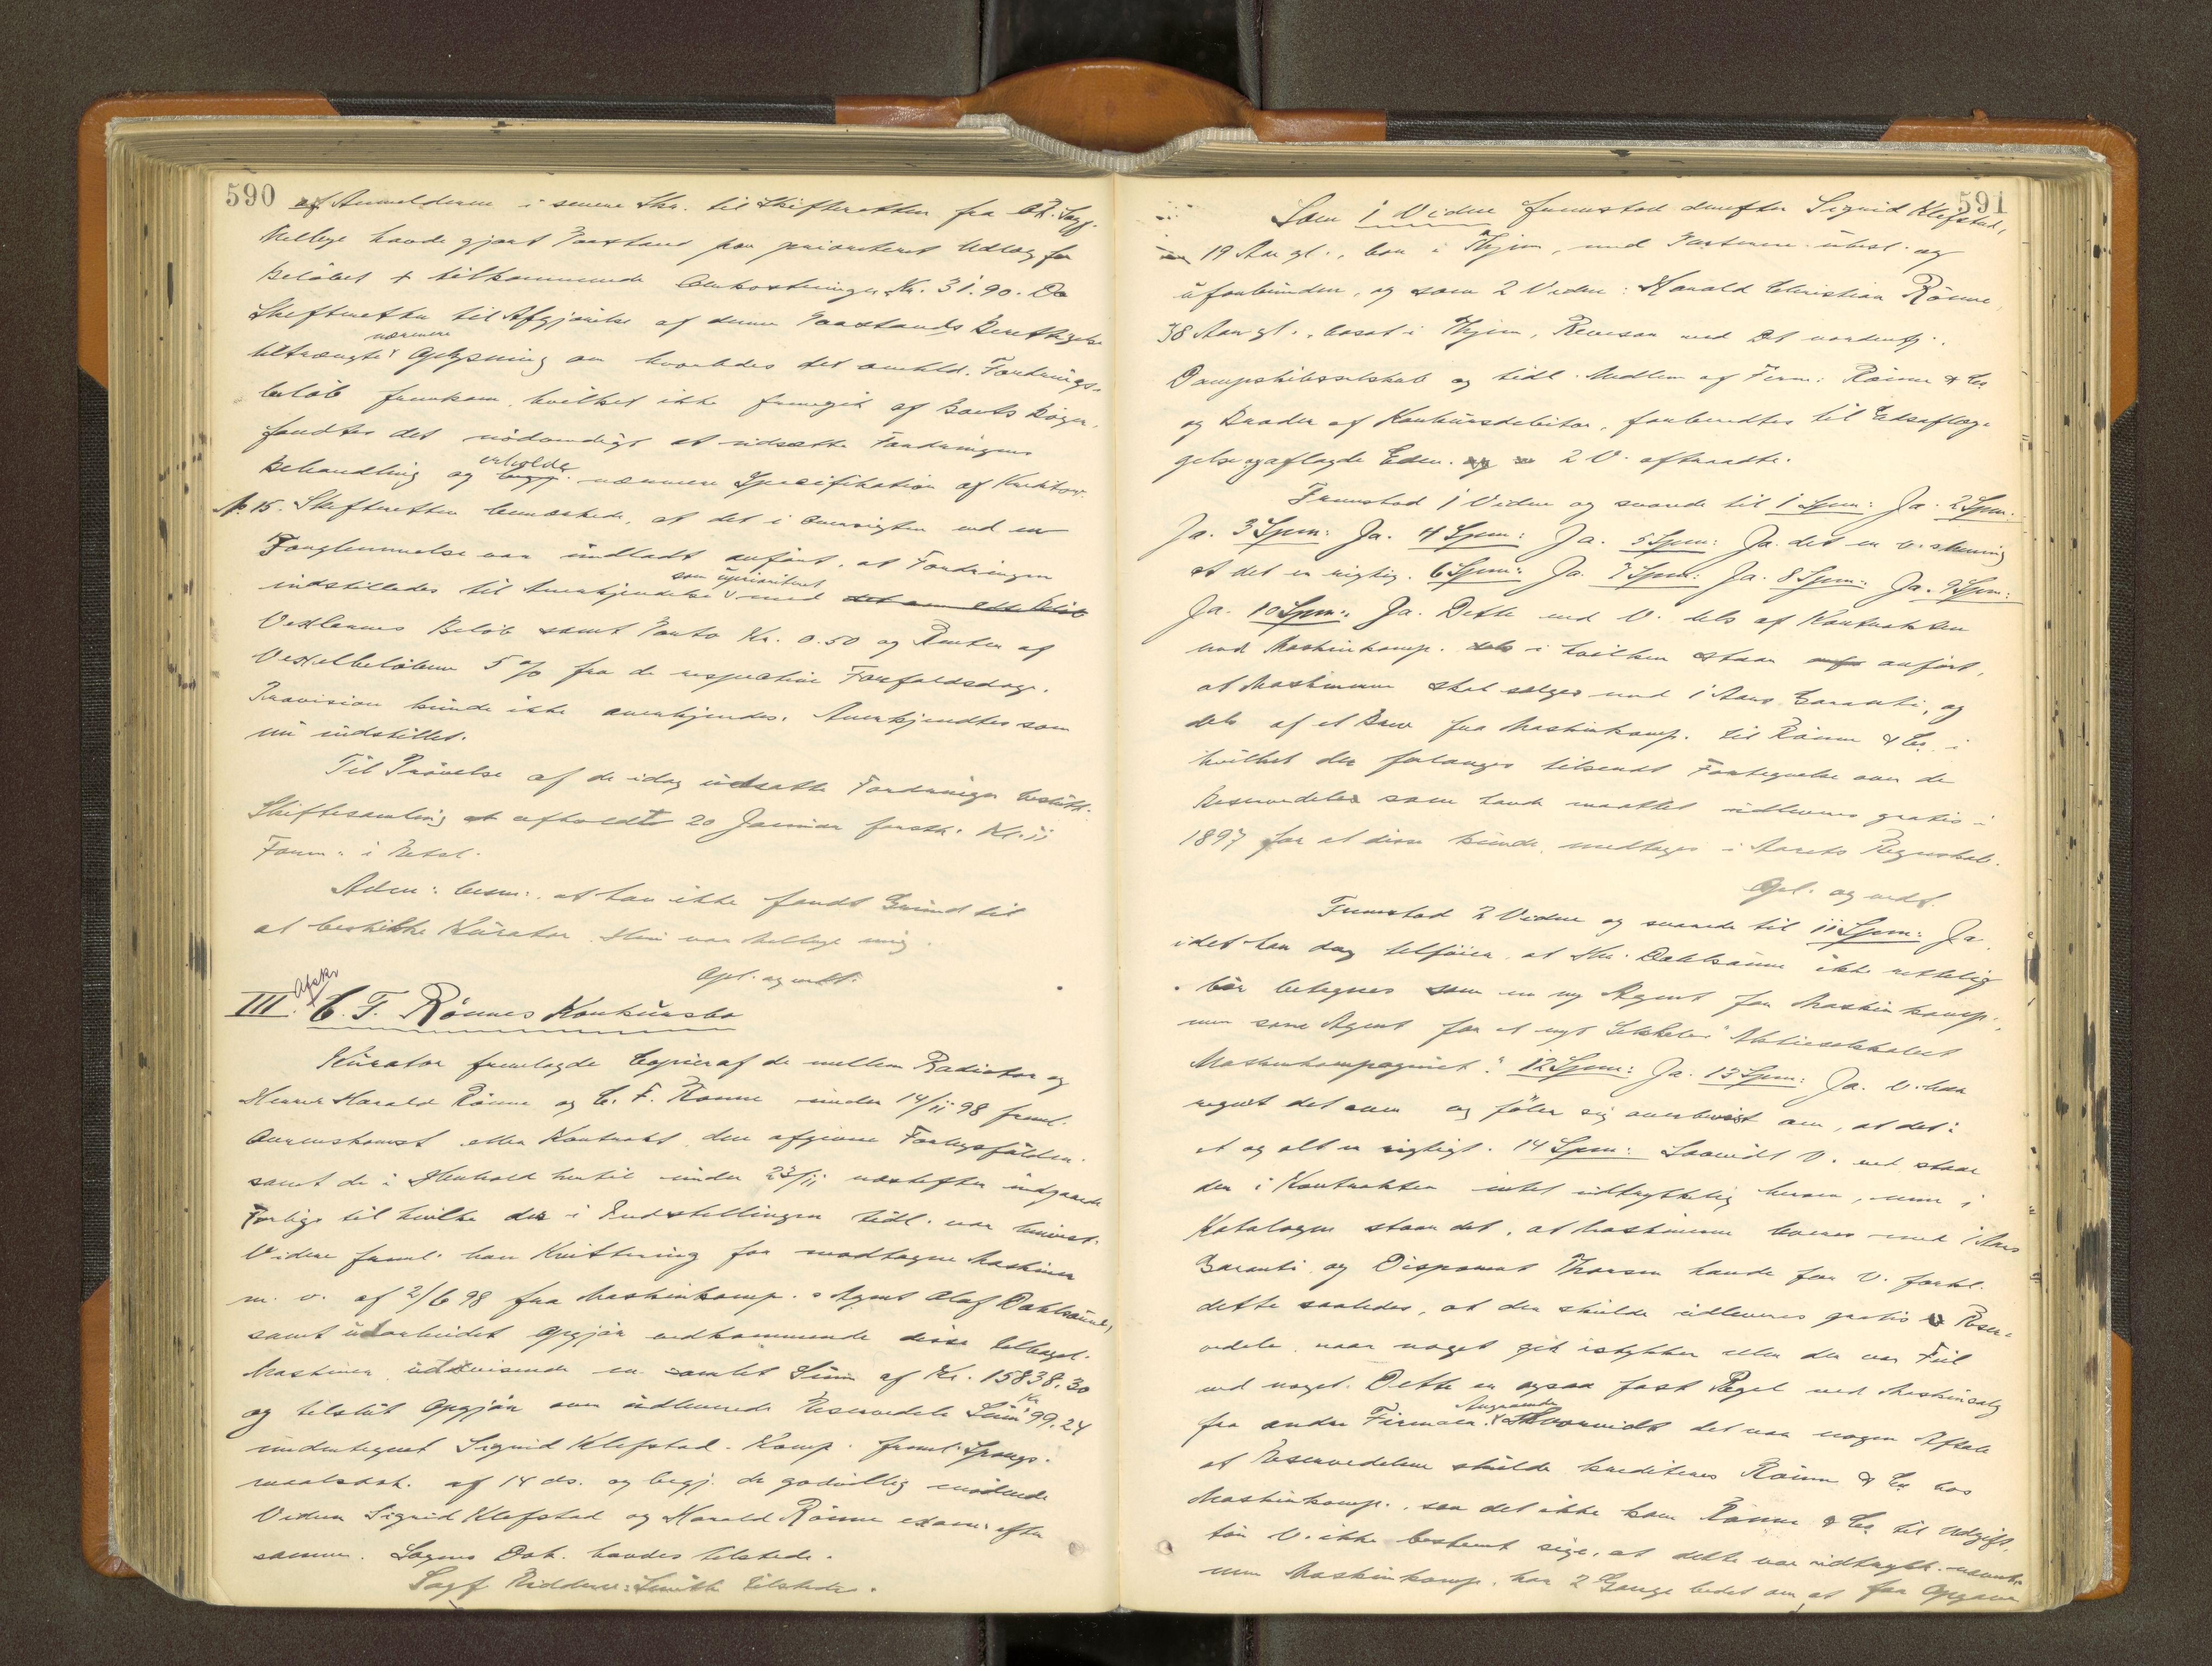 590
af Anmelderne i senere Skr. til Skifteretten fra O.R. Sagf.
Mellbye havde gjort Paastand paa prioriteret Udlæg for
Beløbet + tilkommende Omkostninger Kr. 31.90. Da
Skifteretten til Afgjørelse af denne Paastands Berettigelse
nærmere
tiltrængte Oplysning om hvorledes det anmeldte Fordrings-
beløb fremkom, hvilket ikke fremgik af Boets Bøger,
fandtes det nødvendigt at udsætte Fordringens
erholde
Behandling og nærmere Specifikation af Kreditor.
No 15. Skifteretten bemærkede, at det i Oversigten ved en
Forglemmelse var undladt anført, at Fordringen
som uprioriteret
indstilledes til Anerkjendelse med
Vexlernes Beløb samt Porto Kr. 0.50 og Renter af
Vexelbeløbene 5 % fra de respektive Forfaldsdage.
Provision kunde ikke anerkjendes. Anerkjendtes som
nu indstillet.
Til Prøvelse af de idag udsatte Fordringer beslutt.
Skiftesamling afholdt 20 Januar førstk. Kl. 11
Form. i Retsl.
Adm. bem., at han ikke fandt Grund til
at beskikke Kurator. Hrr. var Mellbye enig.
Opl. og vedt.
Afskr
III. C. F. Rønnes Konkursbo
Kurator fremlagde Copier af de mellem Radiator og
Herrer Harald Rönne og C. F. Rönne under 14/11 98 freml.
Overenskomst eller Kontrakt, den afgivne
samt de i Henhold hertil under 23/11 næstefter indgaaede
Forlig til hvilke der i Indstillingen tidl. var henvist.
Videre freml. han Kvittering for modtagne Maskiner
m. v. af 2/6 98 fra Maskinkomp. s Agent Olaf Dahlsaune,
samt udarbeidet Opgjør vedkommende disse tilbaget.
Maskiner, udvisende en samlet Sum af Kr. 15838.30
Kr
og tilslut Opgjør over udleverede Reservedele Sum 99.24
undertegnet Sigrid Klefstad. Komp. freml. Spørgs-
maalsdok. af 14 ds. og begj. de godvillig mødende
Vidner Sigrid Klefstad og Harald Rönne exam. efter
samme. Sagens Dok. havdes tilstede.
Sagf. Smith tilstede.
591
Som 1 Vidne fremstod derefter Sigrid Klefstad,
19 Aar gl., bor i Thjem, med Parterne ubesl. og
uforbunden, og som 2 Vidne: Harald Christian Rönne
38 Aar gl., bosat i Thjem, Revisor ved Det nordenfj.
Dampskibsselskab og tidl. Medlem af Firm. Rönne & Co
og Broder af Konkursdebitor, forberedtes til Edsaflæg-
gelse og aflagde Eden. 2 V. aftraadte.
Fremstod 1 Vidne og svarede til 1 Spm: Ja. 2 Spm:
Ja. 3 Spm: Ja. 4 Spm: Ja. 5 Spm: Ja. det er V.s Mening
at det er rigtig. 6 Spm: Ja. 7 Spm: Ja. 8 Spm: Ja. 9 Spm:
Ja. 10 Spm: Ja. Dette ved V. dels af Kontrakten
med Maskinkomp. i hvilken staar anført,
at Maskinerne skal sælges med 1 Aars Garanti, og
dels af et Brev fra Maskinkomp. til Rönne & Co i
hvilket der forlanges tilsendt Fortegnelse over de
Reservedele som havde maattet udleveres gratis i
1897 for at disse kunde medtages i Aarets Regnskab.
Opl. og vedt.
Fremstod 2 Vidne og svarede til 11 Spm: Ja,
idet han dog tilføier, at Hr. Dahlsaune ikke rettelig
bør betegnes som en ny Agent for Maskinkomp.,
men som Agent for et nyt Selskab "Aktieselskabet
Maskinkompagniet". 12 Spm: Ja. 13 Spm: Ja. V. har
regnet det over og føler sig overbevist om, at det
et og alt er rigtigt. 14 Spm: Saavidt V. ved staar
der i Kontrakten intet udtrykkelig herom, men i
Katalogen staar det, at Maskinerne leveres med 1 Aars
Garanti, og Disponent Thorsen havde for V. forkl.
dette saaledes, at der skulde udleveres gratis Reser-
vedele, naar noget gik istykker eller der var Feil
ved noget. Dette er ogsaa fast Regel ved Maskinsalg
Angaaende
fra andre Firmaer. hvorvidt det var nogen Aftale
at Reservedelene skulde krediteres Rönne & Co hos
Maskinkomp., saa det ikke kom Rönne & Co til Udgift,
tør V. ikke bestemt sige, at dette var udtrykk. nævnt,
men Maskinkomp. har 2 Gange bedet om at faa Opgave